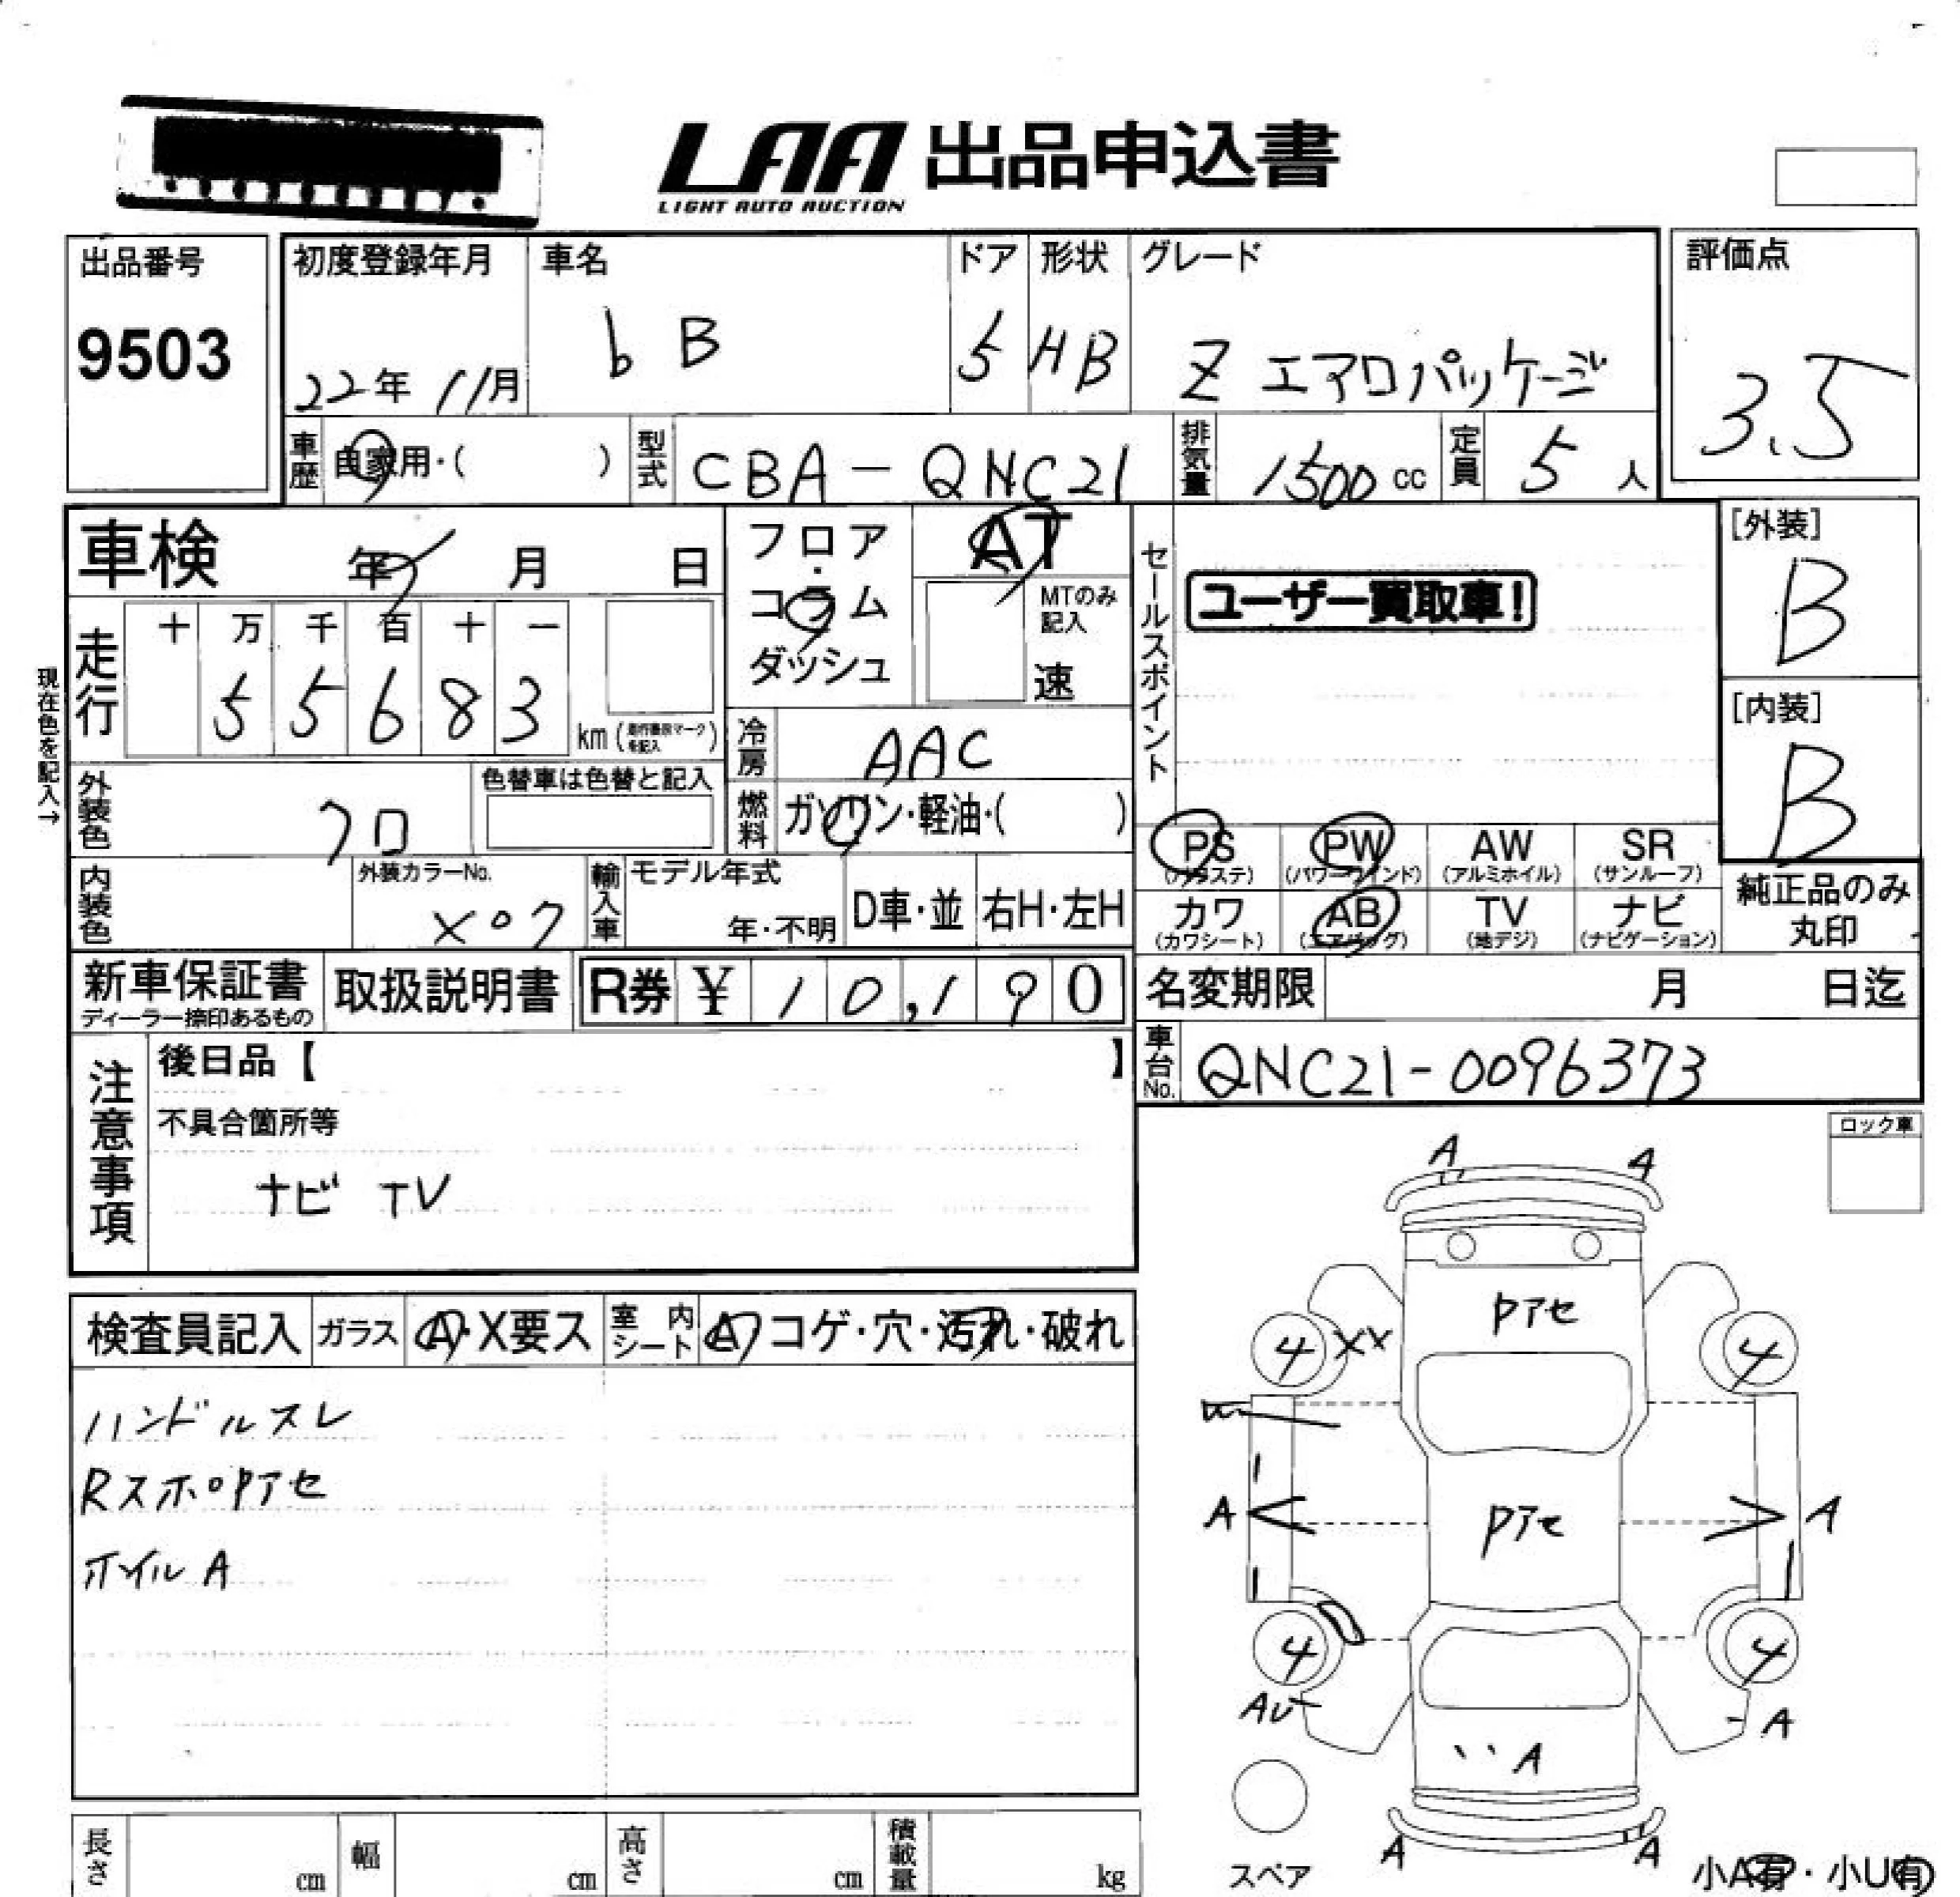 LAA 出品申込書
LIGHT AUTO AUCTION
出品番号
9503
初度登録年月
22年 11月
車名
bB
ドア
5
形状
HB
グレード
Z エアロパッケージ
評価点
3.5
車歴
自家用・( )
型式
CBA-QNC21
排気量
1500 cc
定員
5 人
車検 年 月 日
フロア・コラム
ダッシュ
AT
MTのみ
記入
速
セールスポイント
ユーザー買取車!
[外装]
B
[内装]
B
現在色を記入→
走行
十 万 千 百 十 一
5 5 6 8 3
km
冷房
AAC
燃料
ガソリン・軽油・( )
外装色
クロ
色替車は色替と記入
内装色
外装カラーNo.
X07
輸入車
モデル年式
年・不明
D車・並
右H・左H
PS
(パワステ)
PW
(パワーウインド)
AW
(アルミホイル)
SR
(サンルーフ)
カワ
(カワシート)
AB
(エアバッグ)
TV
(地デジ)
ナビ
(ナビゲーション)
純正品のみ
丸印
新車保証書
ディーラー捺印あるもの
取扱説明書
R券 ¥ 10,190
名変期限 月 日迄
車台No.
QNC21-0096373
注意事項
後日品【 】
不具合箇所等
ナビ TV
ロック車
検査員記入
ガラス
A・X要ス
室内シート
A コゲ・穴・汚れ・破れ
ハンドルスレ
RスポPアセ
ホイルA
A A
Pアセ
4 XX 4
A Pアセ A
4 4
AU A
A
A A
スペア
小A有・小U有
長さ cm
幅 cm
高さ cm
積載量 kg